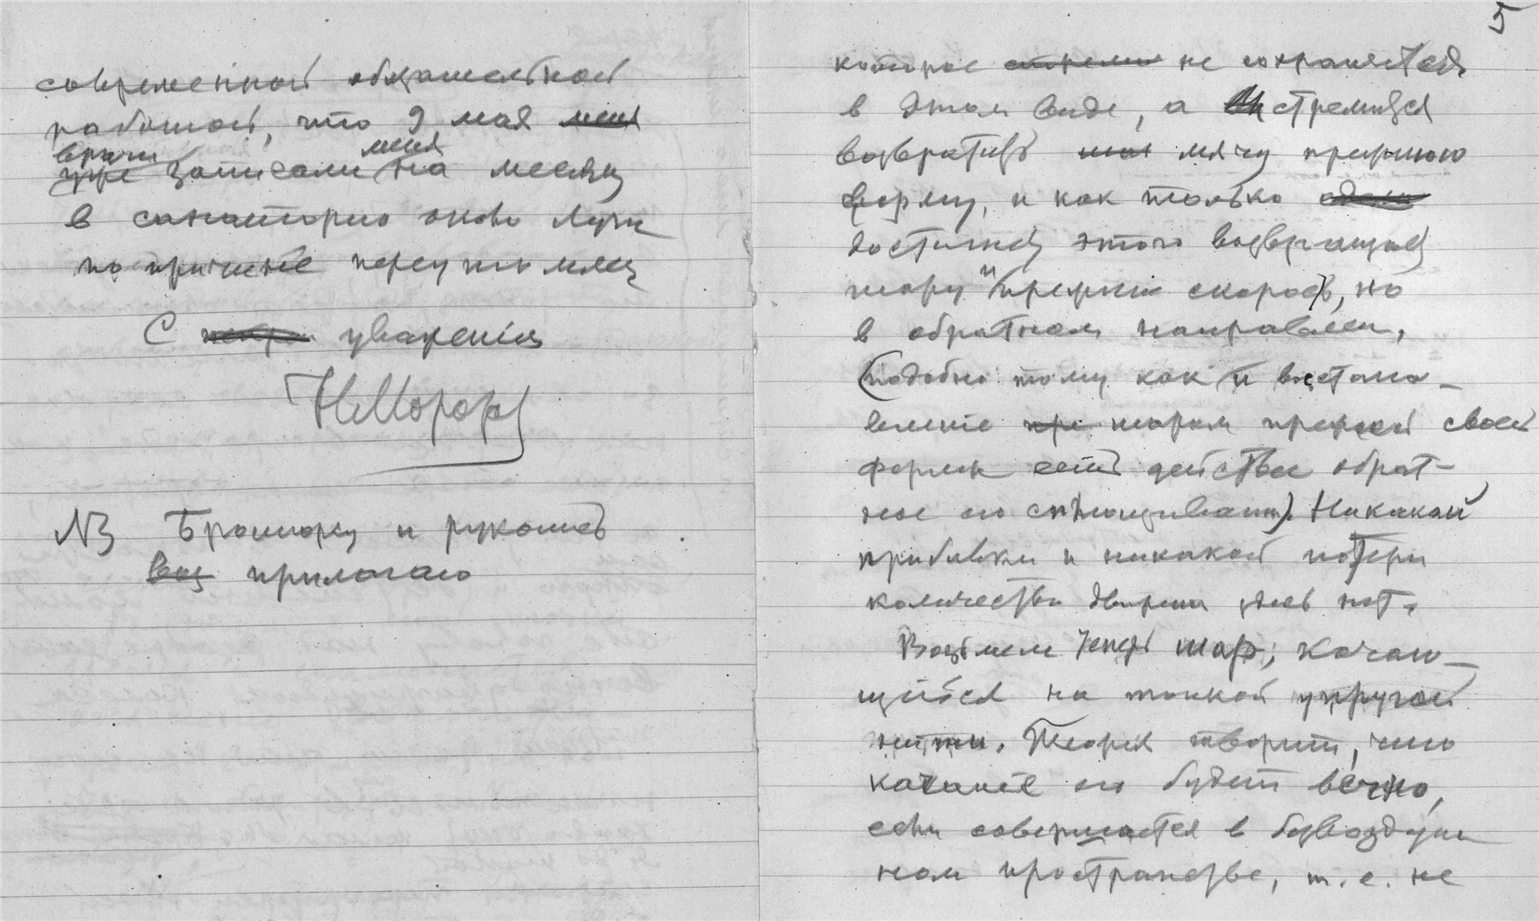 современной обязательной
работой, что 9 мая
врачи записали меня на месяц
в санаторию около Луги
по причине переутомлен
С уважением
НМороз
NB Брошюру и рукопись
прилагаю
5
которое не сохраняется
в этом виде, а стремится
возвратить мячу прежнюю
форму, и как только
достигнет этого возвращает
шару и прежнюю скорость, но
в обратном направлен,
(подобно тому как и востано-
вление шаром прежней своей
формы есть действие обрат-
ное его сплющиванию). Никакой
прибавки и никакой потери
количества движения здесь нет.
Возьмем теперь шар, качаю-
щийся на тонкой упругой
нити. Теория говорит, что
качание его будет вечно,
если совершается в безвоздуш
ном пространстве, т. е. не